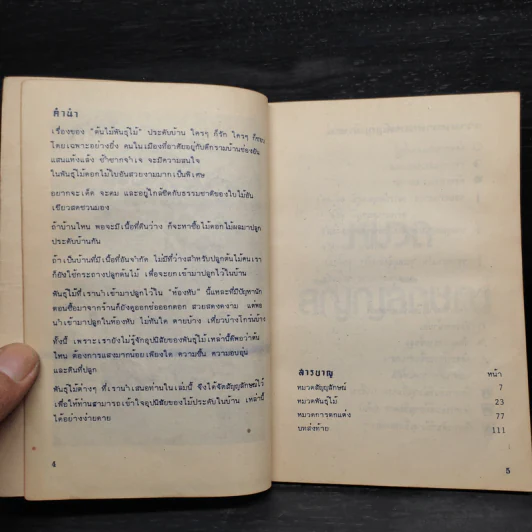 คำนำ
เรื่องของ "ต้นไม้พันธุ์ไม้" ประดับบ้าน ใครๆ ก็รัก ใครๆ ก็ชอบ
โดยเฉพาะอย่างยิ่ง คนในเมืองที่อาศัยอยู่กับตึกรามบ้านช่องอัน
แสนแห้งแล้ง ซ้ำซากจำเจ จะมีความสนใจ
ในพันธุ์ไม้ดอกไม้ใบอันสวยงามมากเป็นพิเศษ
อยากจะเด็ด จะดม และอยู่ใกล้ชิดกับธรรมชาติของใบไม้อัน
เขียวสดชวนมอง
ถ้าบ้านไหน พอจะมีเนื้อที่ดินว่าง ก็จะหาซื้อไม้ดอกไม้ผลมาปลูก
ประดับบ้านกัน
ถ้าเป็นบ้านที่มีเนื้อที่อันจำกัด ไม่มีที่ว่างสำหรับปลูกต้นไม้ คนเรา
ก็ยังใช้กระถางปลูกต้นไม้ เพื่อจะยกเข้ามาปลูกไว้ในบ้าน
พันธุ์ไม้ที่เรานำเข้ามาปลูกไว้ใน "ห้องทึบ" นี้แหละที่มีปัญหานัก
ตอนซื้อมาจากร้านก็ยังดูออกช่อออกดอก สวยสดงดงาม แต่พอ
นำเข้ามาปลูกในห้องทึบ ไม่ทันใด ตายบ้าง เหี่ยวบ้างโกร๋นบ้าง
ทั้งนี้ เพราะเรายังไม่รู้จักอุปนิสัยของพันธุ์ไม้เหล่านี้ดีพอว่าต้น
ไหน ต้องการแสงมากน้อยเพียงใด ความชื้น ความอบอุ่น
และดินที่ปลูก
พันธุ์ไม้ต่างๆ ที่เรานำเสนอท่านในเล่มนี้ จึงได้จัดสัญญลักษณ์ไว้
เพื่อให้ท่านสามารถเข้าใจอุปนิสัยของไม้ประดับในบ้าน เหล่านี้
ได้อย่างง่ายดาย
4
สารบาญ หน้า
หมวดสัญลักษณ์ 7
หมวดพันธุ์ไม้ 23
หมวดการตกแต่ง 77
บทส่งท้าย 111
5